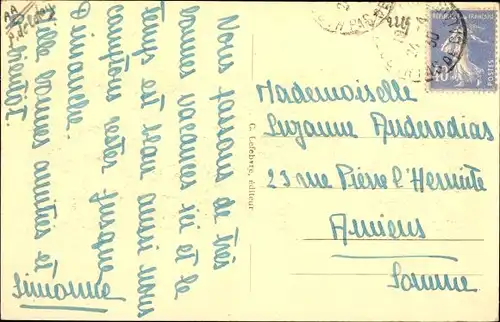 Nous passons de très
bonnes vacances ici et le
temps est beau aussi nous
comptons rester jusque
Dimanche.
Mille bonnes amitiés et
bientôt.
Simonne
C. Lefebvre, éditeur
REPUBLIQUE FRANÇAISE
POSTES
Mademoiselle
Suzanne Anderodias
23 rue Pierre l'Hermite
Amiens
Somme